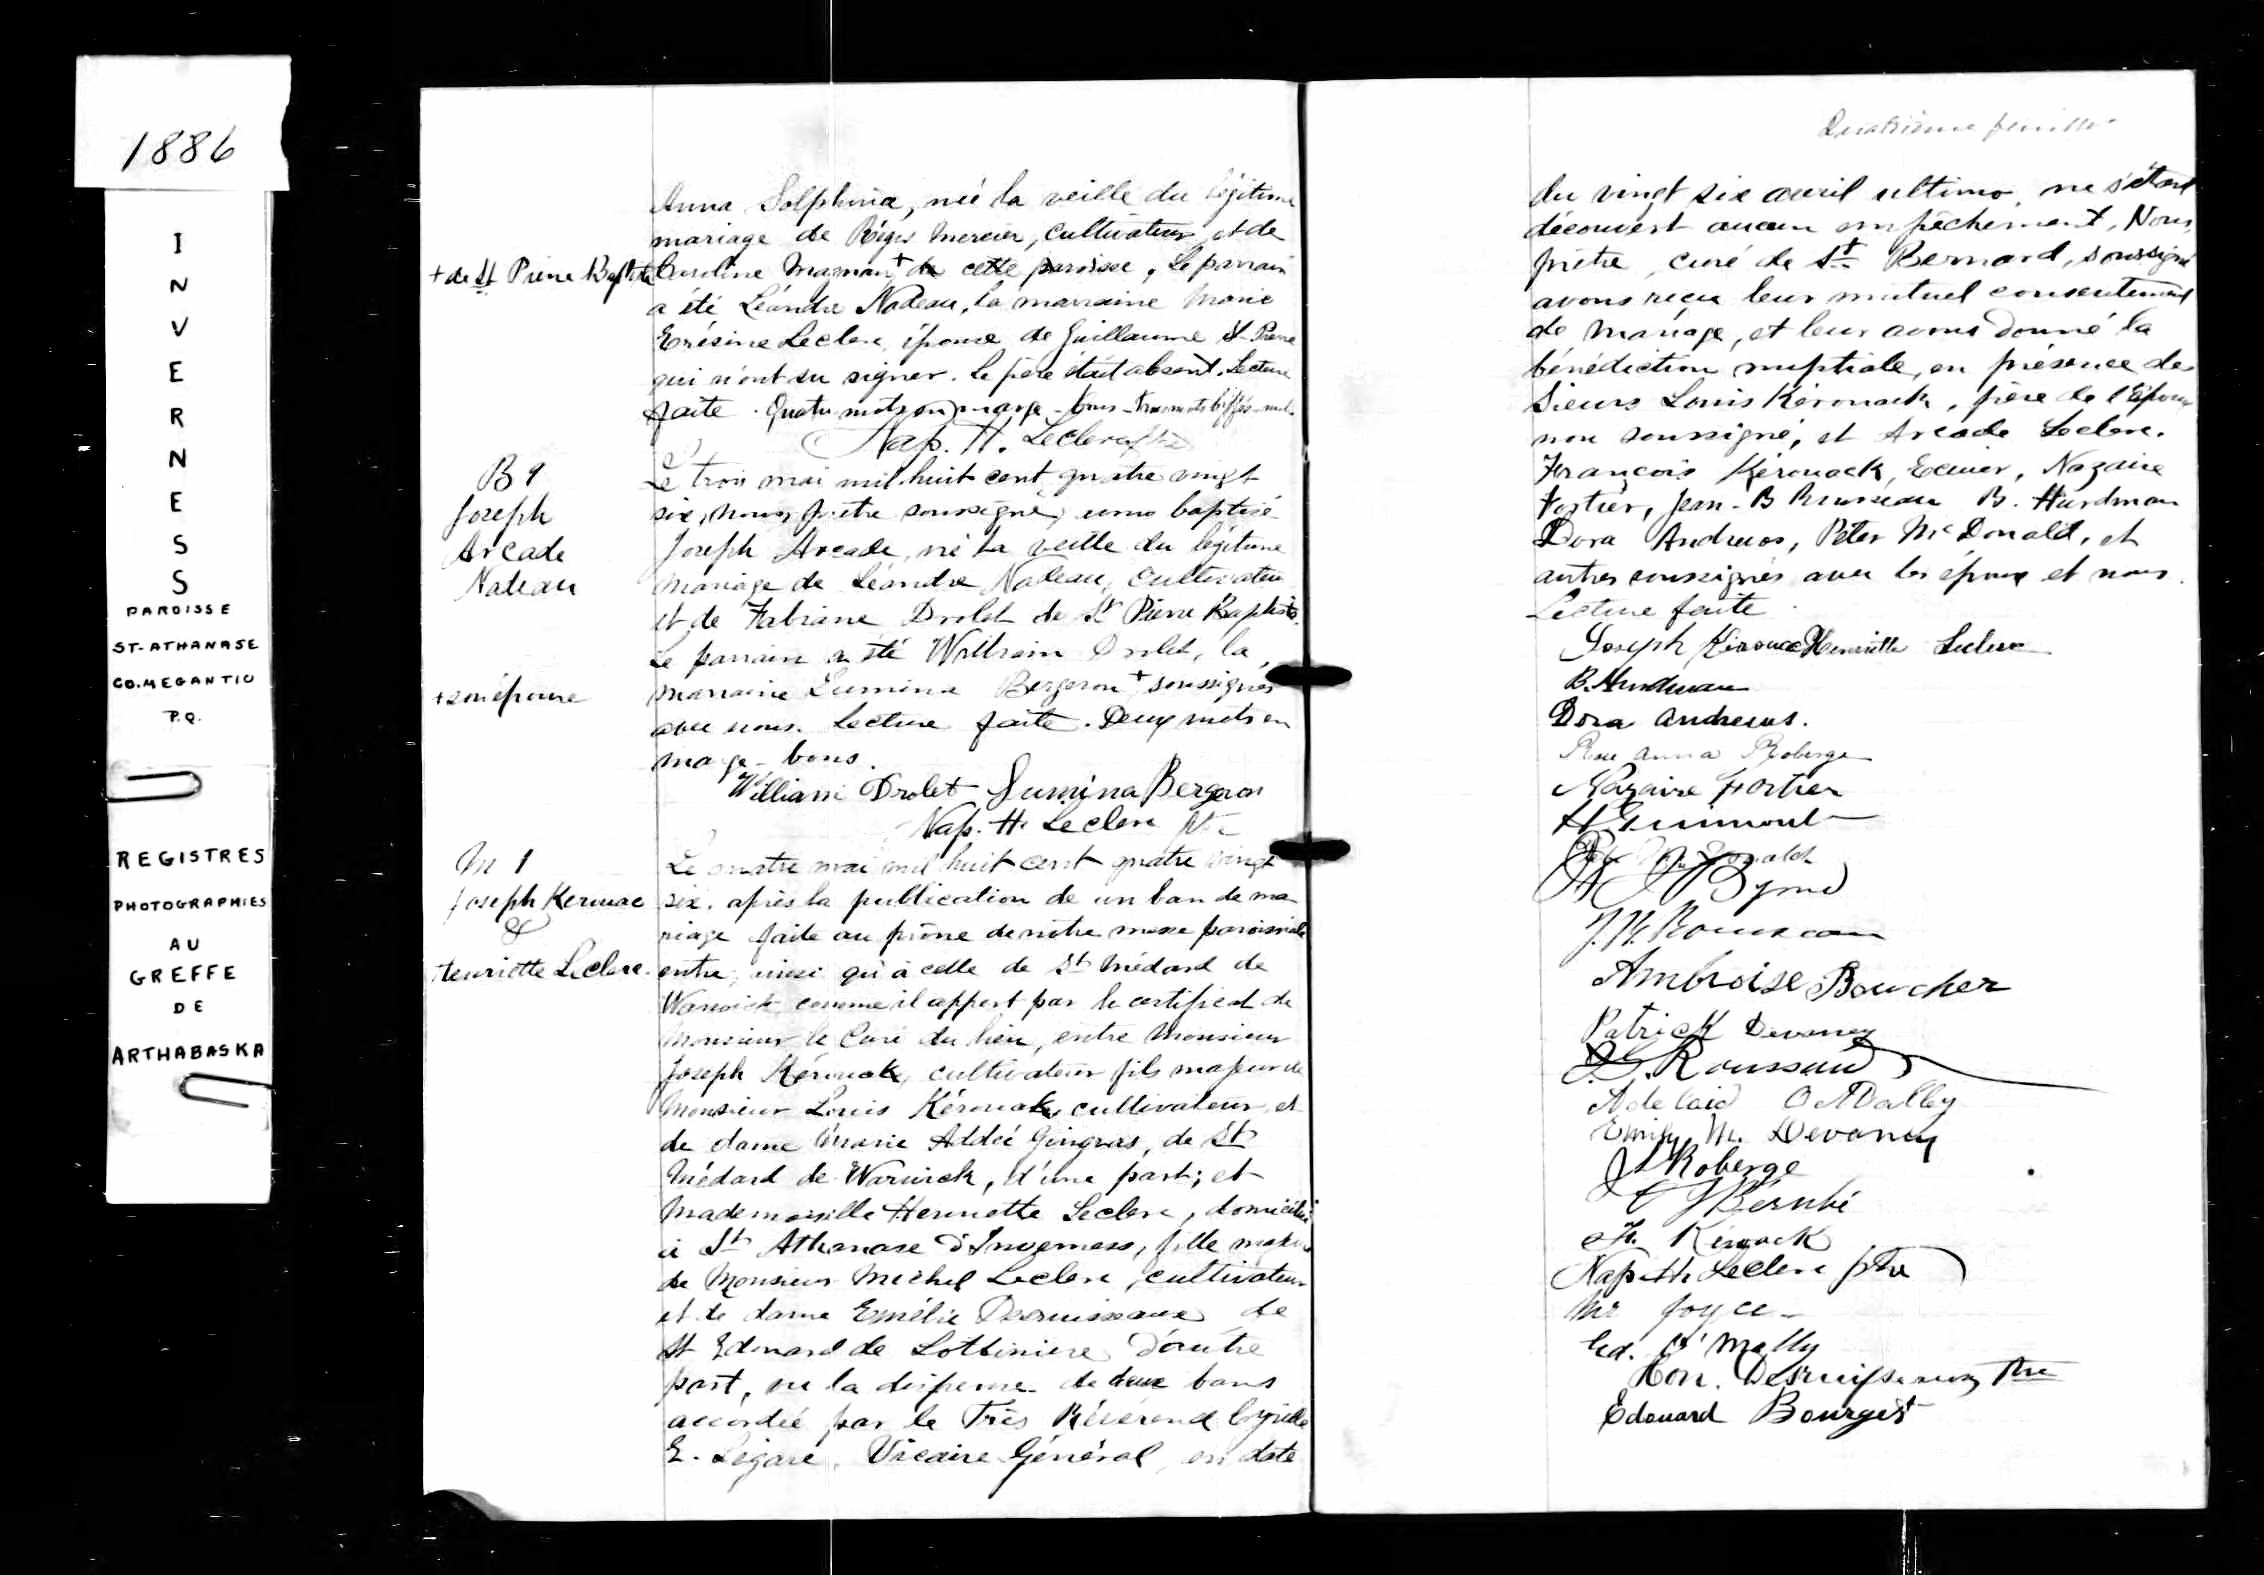 1886
INVERNESS
PAROISSE
ST-ATHANASE
CO. MEGANTIC
P.Q.
REGISTRES
PHOTOGRAPHIES
AU
GREFFE
DE
ARTHABASKA
Anna Solphina, née la veille du légitime
mariage de Régis Mercier, cultivateur et de
+ de St Pierre Baptiste
Caroline Maman + de cette paroisse. Le parrain
a été Léandre Nadeau, la marraine Marie
Erésine Leclerc, épouse de Guillaume St-Pierre
qui n'ont su signer. Le père était absent. Lecture
faite. Quatre mots en marge - bons - trois mots biffés - nuls
Nap. H. Leclerc ptre
B 9
Joseph
Arcade
Nadeau
Le trois mai mil huit cent quatre vingt
six, nous, prêtre soussigné, avons baptisé
Joseph Arcade, né la veille du légitime
mariage de Léandre Nadeau, cultivateur
et de Fabiane Drolet de St Pierre Baptiste.
Le parrain a été William Drolet, la
+ son épouse
marraine Lumina Bergeron + soussignés
avec nous. Lecture faite. Deux mots en
marge - bons.
William Drolet Lumina Bergeron
Nap. H. Leclerc Ptre
M 1
Joseph Kerouac
&
Henriette Leclerc.
Le quatre mai mil huit cent quatre vingt
six, après la publication de un ban de ma-
riage faite au prône de nôtre messe paroissiale
entre, ainsi qu'à celle de St Médard de
Warwick comme il appert par le certificat de
Monsieur le Curé du lieu, entre Monsieur
Joseph Kérouack, cultivateur fils majeur de
Monsieur Louis Kérouack cultivateur et
de dame Marie Addée Gingras, de St
Médard de Warwick, d'une part; et
Mademoiselle Henriette Leclerc, domiciliée
à St Athanase d'Inverness, fille majeure
de Monsieur Michel Leclerc, cultivateur
et de dame Emélie Desruisseaux de
St Edouard de Lotbiniere d'autre
part, vu la dispense de deux bans
accordée par le Très Révérend Cyrille
E. Légaré, Vicaire Général, en date
Quatrième feuillet
du vingt six avril ultimo, ne s'étant
découvert aucun empêchement, Nous,
prêtre, curé de St Bernard, soussigné
avons reçu leur mutuel consentement
de mariage, et leur avons donné la
bénédiction nuptiale, en présence de
Sieurs Louis Kérouack, père de l'Epoux
non soussigné, et Arcade Leclerc.
François Kérouack, Ecuier, Nazaire
Fortier, Jean-B Rousseau B. Hurdman
Dora Andrews, Peter McDonald, et
autres soussignés avec les époux et nous.
Lecture faite.
Joseph Kirouac Henriette Leclerc
B. Hurdman
Dora Andrews.
Rose anna Roberge
Nazaire Fortier
Peter McDonald
J. B. Rousseau
Ambroise Boucher
Patrick Devaney
Rousseau
Adelaid O'Malley
Emily M. Devaney
Roberge
Bérubé
F. Kérouack
Nap. H. Leclerc ptre
Mr Joyce
Ed. O'Mally
Hon. Desruisseaux Ptre
Edouard Bourget